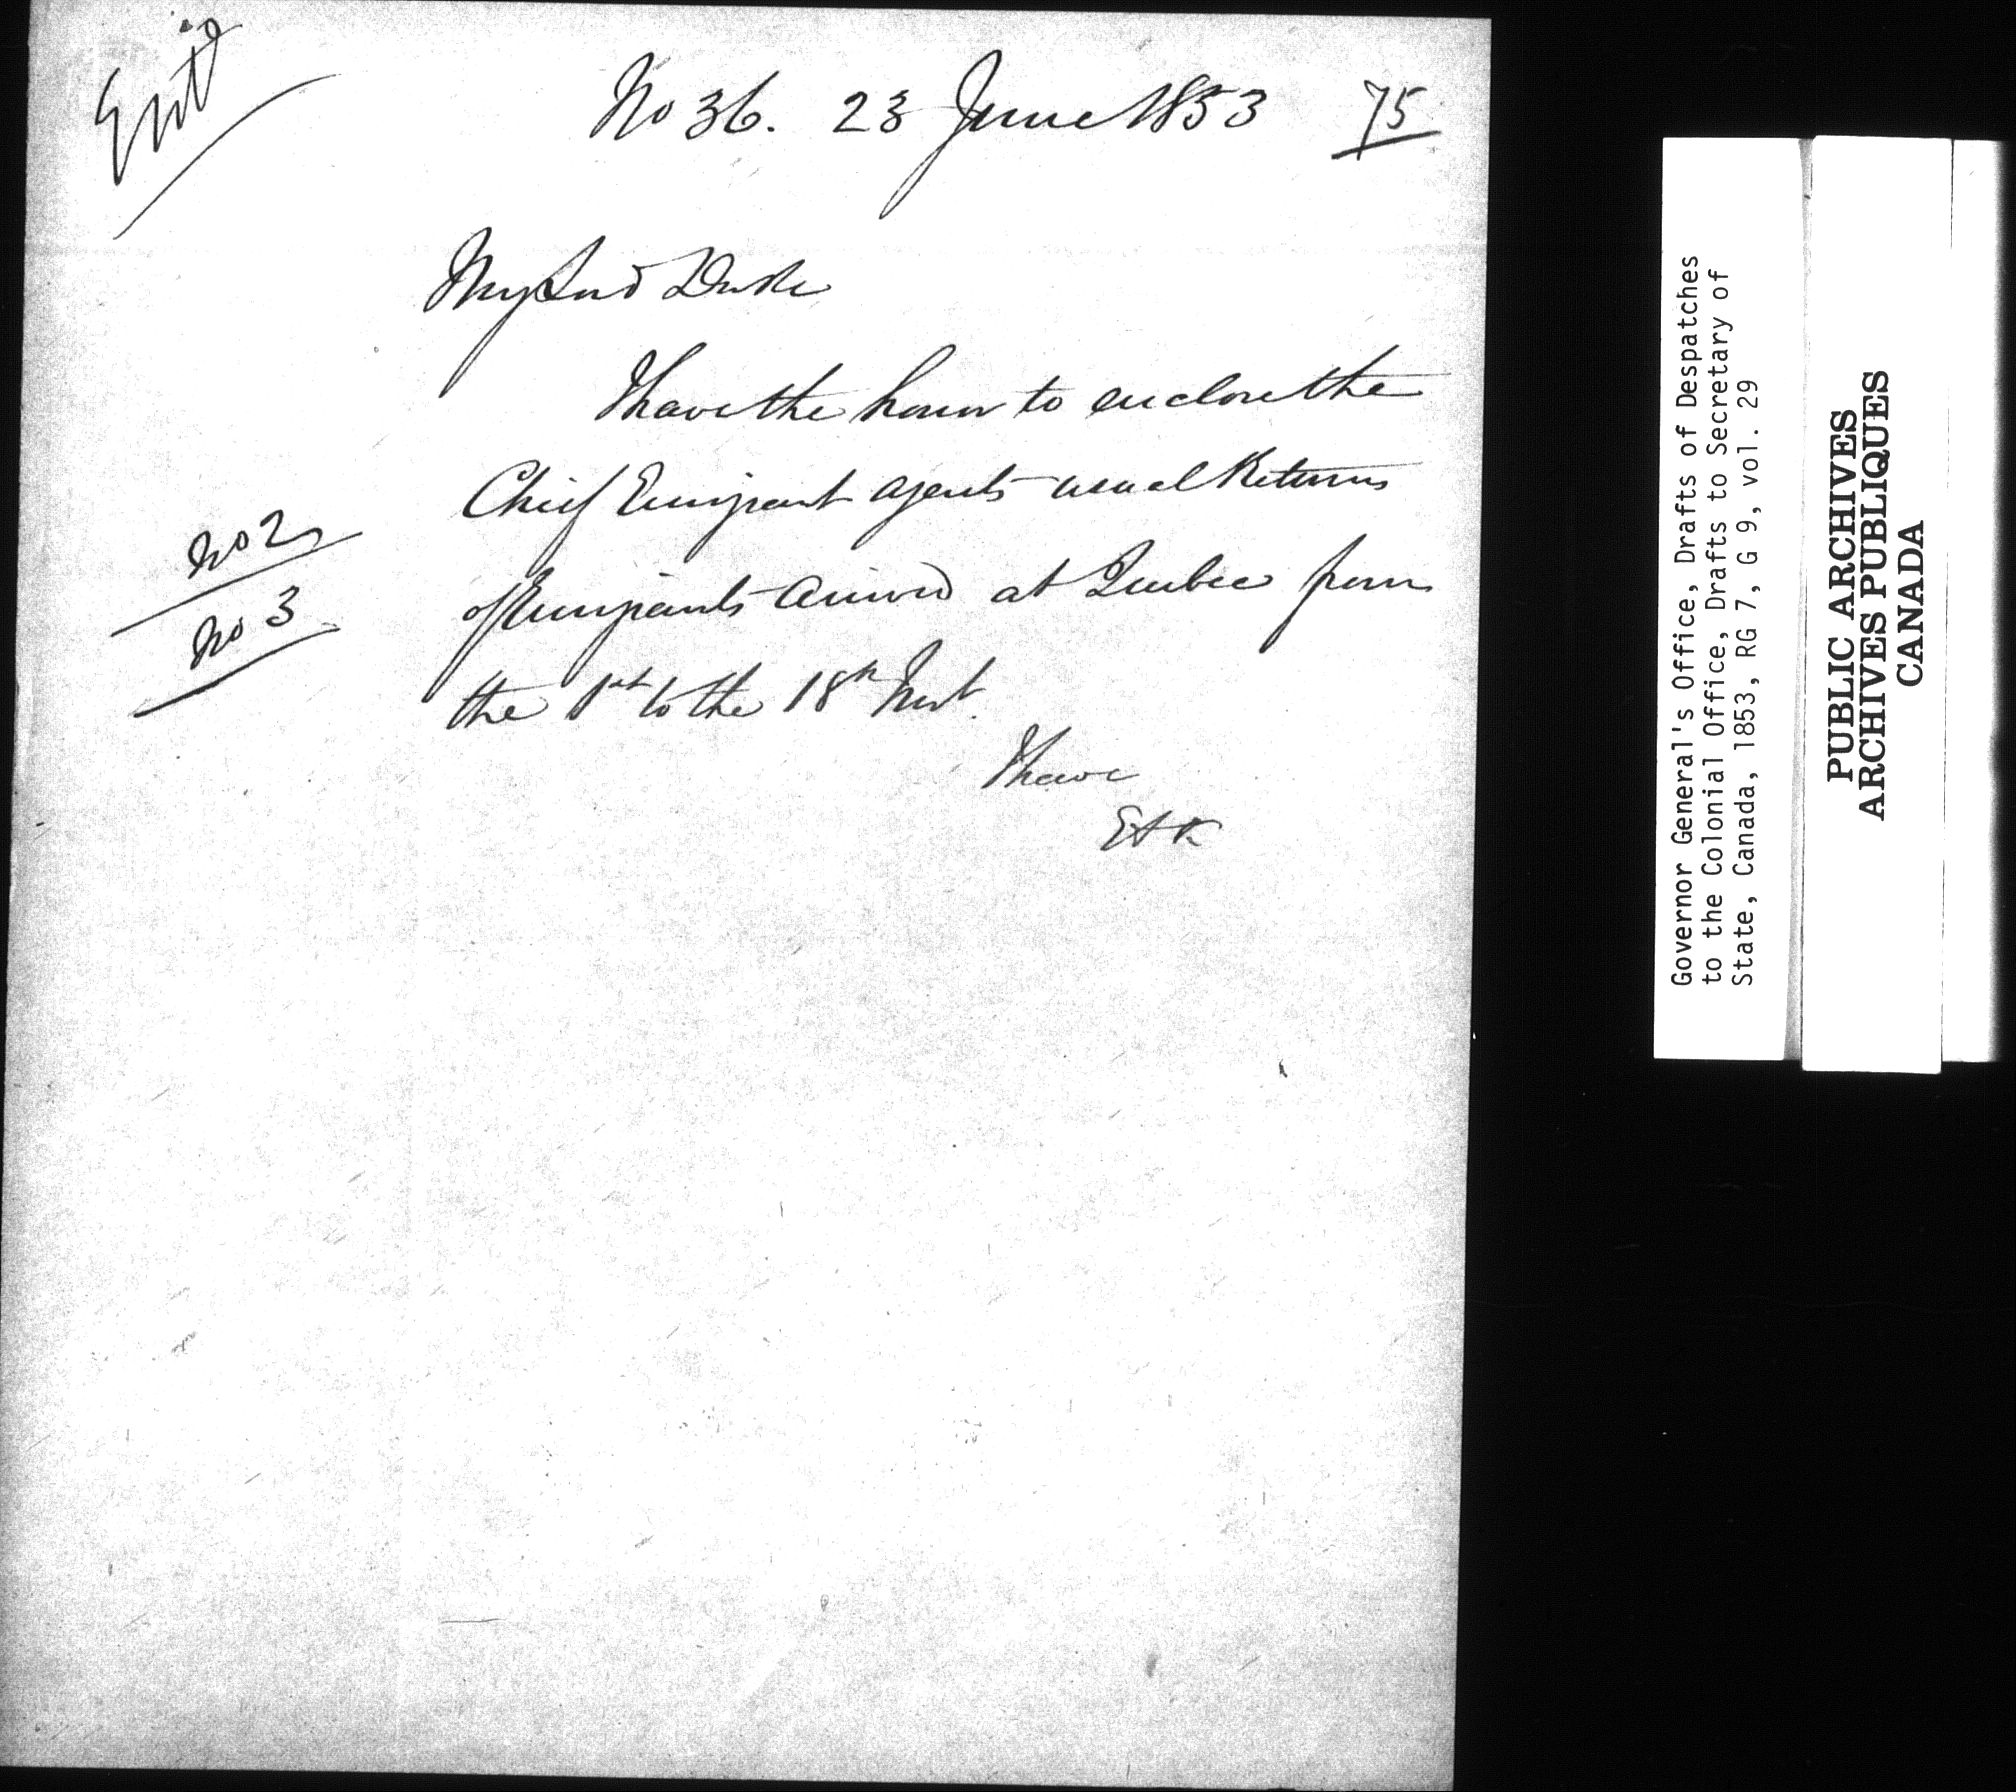 Entd
No 36. 23 June 1853 75
My Lord Duke
I have the honor to enclose the
Chief Emigrant agents usual Returns
of Emigrants arrived at Quebec from
the 1st to the 18th Inst.
I have
No 2
No 3
Governor General's Office, Drafts of Despatches
to the Colonial Office, Drafts to Secretary of
State, Canada, 1853, RG 7, G 9, vol. 29
PUBLIC ARCHIVES
ARCHIVES PUBLIQUES
CANADA